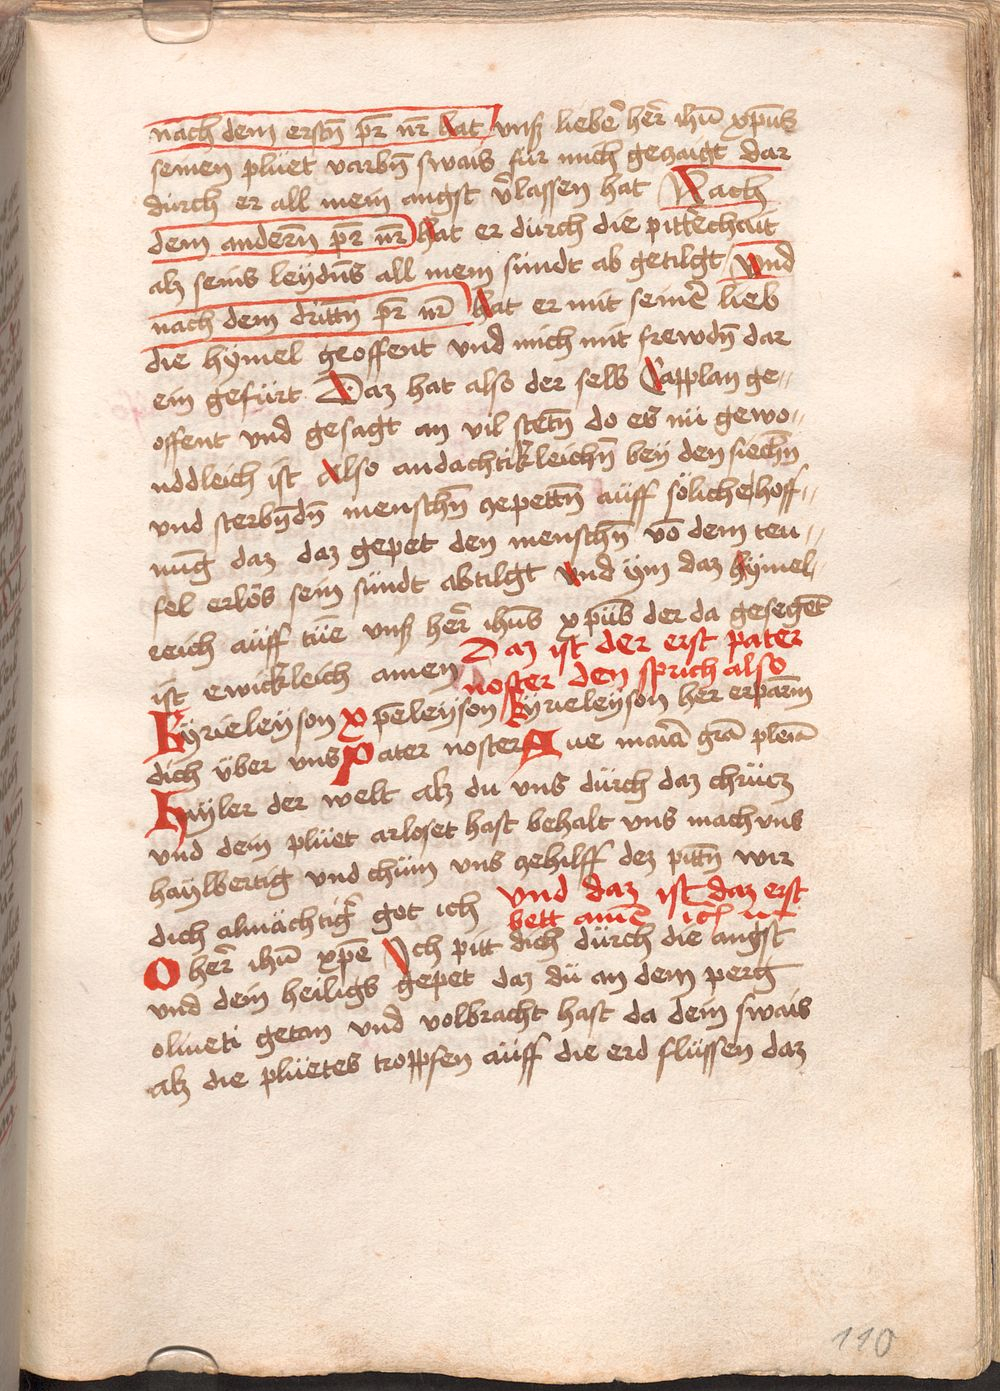 nach dem erstn̄ pr̄ nr̄ hat vnß liebē her̄ ihū xp̄us
seinen pluet varbn̄ swais für mich geczaigt dar
durch er all mein angst v̄lassen hat Nach
dem andern̄ pr̄ nr̄ hat er durch die pittēchait
alz seins leydn̄s all mein sündt ab getilgt vnd
nach dem drittn̄ pr̄ nr̄ hat er mit seinē lieb
die hymel geoffent vnd mich mit frewdn̄ dar
ein gefürt Daz hat also der selb Capplan ge„
offent vnd gesagt an vil stetn̄ do es nü gewo„
nddleich ist Also andachtikleichn̄ bey den siechn̄
vnd sterbn̄dn̄ menschn̄ gepettn̄ auff sölichē hoff„
nūg daz daz gepet den menschn̄ vō dem teu„
fel erlös sein sündt abtilgt vnd ym daz hymel„
reich auff tüe vnß her̄ ihūs xp̄us der da gesegēt
ist ewickleich amen Daz ist der erst pater
noster den sprich also
Kyrieleyson xp̄eleyson kyrieleyson her erparm̄
dich über vns Pater noster Aue maria grā plēa
Hayler der welt alz du vns durch daz chrücz
vnd dem pluet arloset hast behalt vns mach vns
haylbertig vnd chüm vns gehilff dez pittn̄ wir
dich almächtigr̄ got ich vnd daz ist daz erst
bett amē ich
O her̄ ihū xp̄e Ich pitt dich durch die angst
vnd dein heiligs gepet daz dü an dem perg
oliueti getan vnd volbracht hast da dein swais
alz die pluetes troppfen auff die erd flüssen daz
110